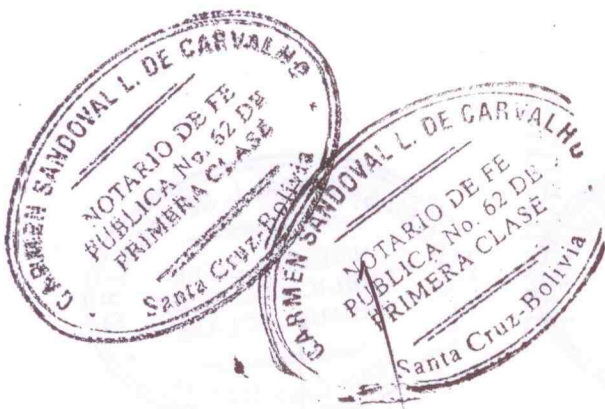 CARMEN SANDOVAL L. DE CARVALHO
NOTARIO DE FE
PUBLICA No. 62 DE
PRIMERA CLASE
Santa Cruz-Bolivia
CARMEN SANDOVAL L. DE CARVALHO
NOTARIO DE FE
PUBLICA No. 62 DE
PRIMERA CLASE
Santa Cruz-Bolivia